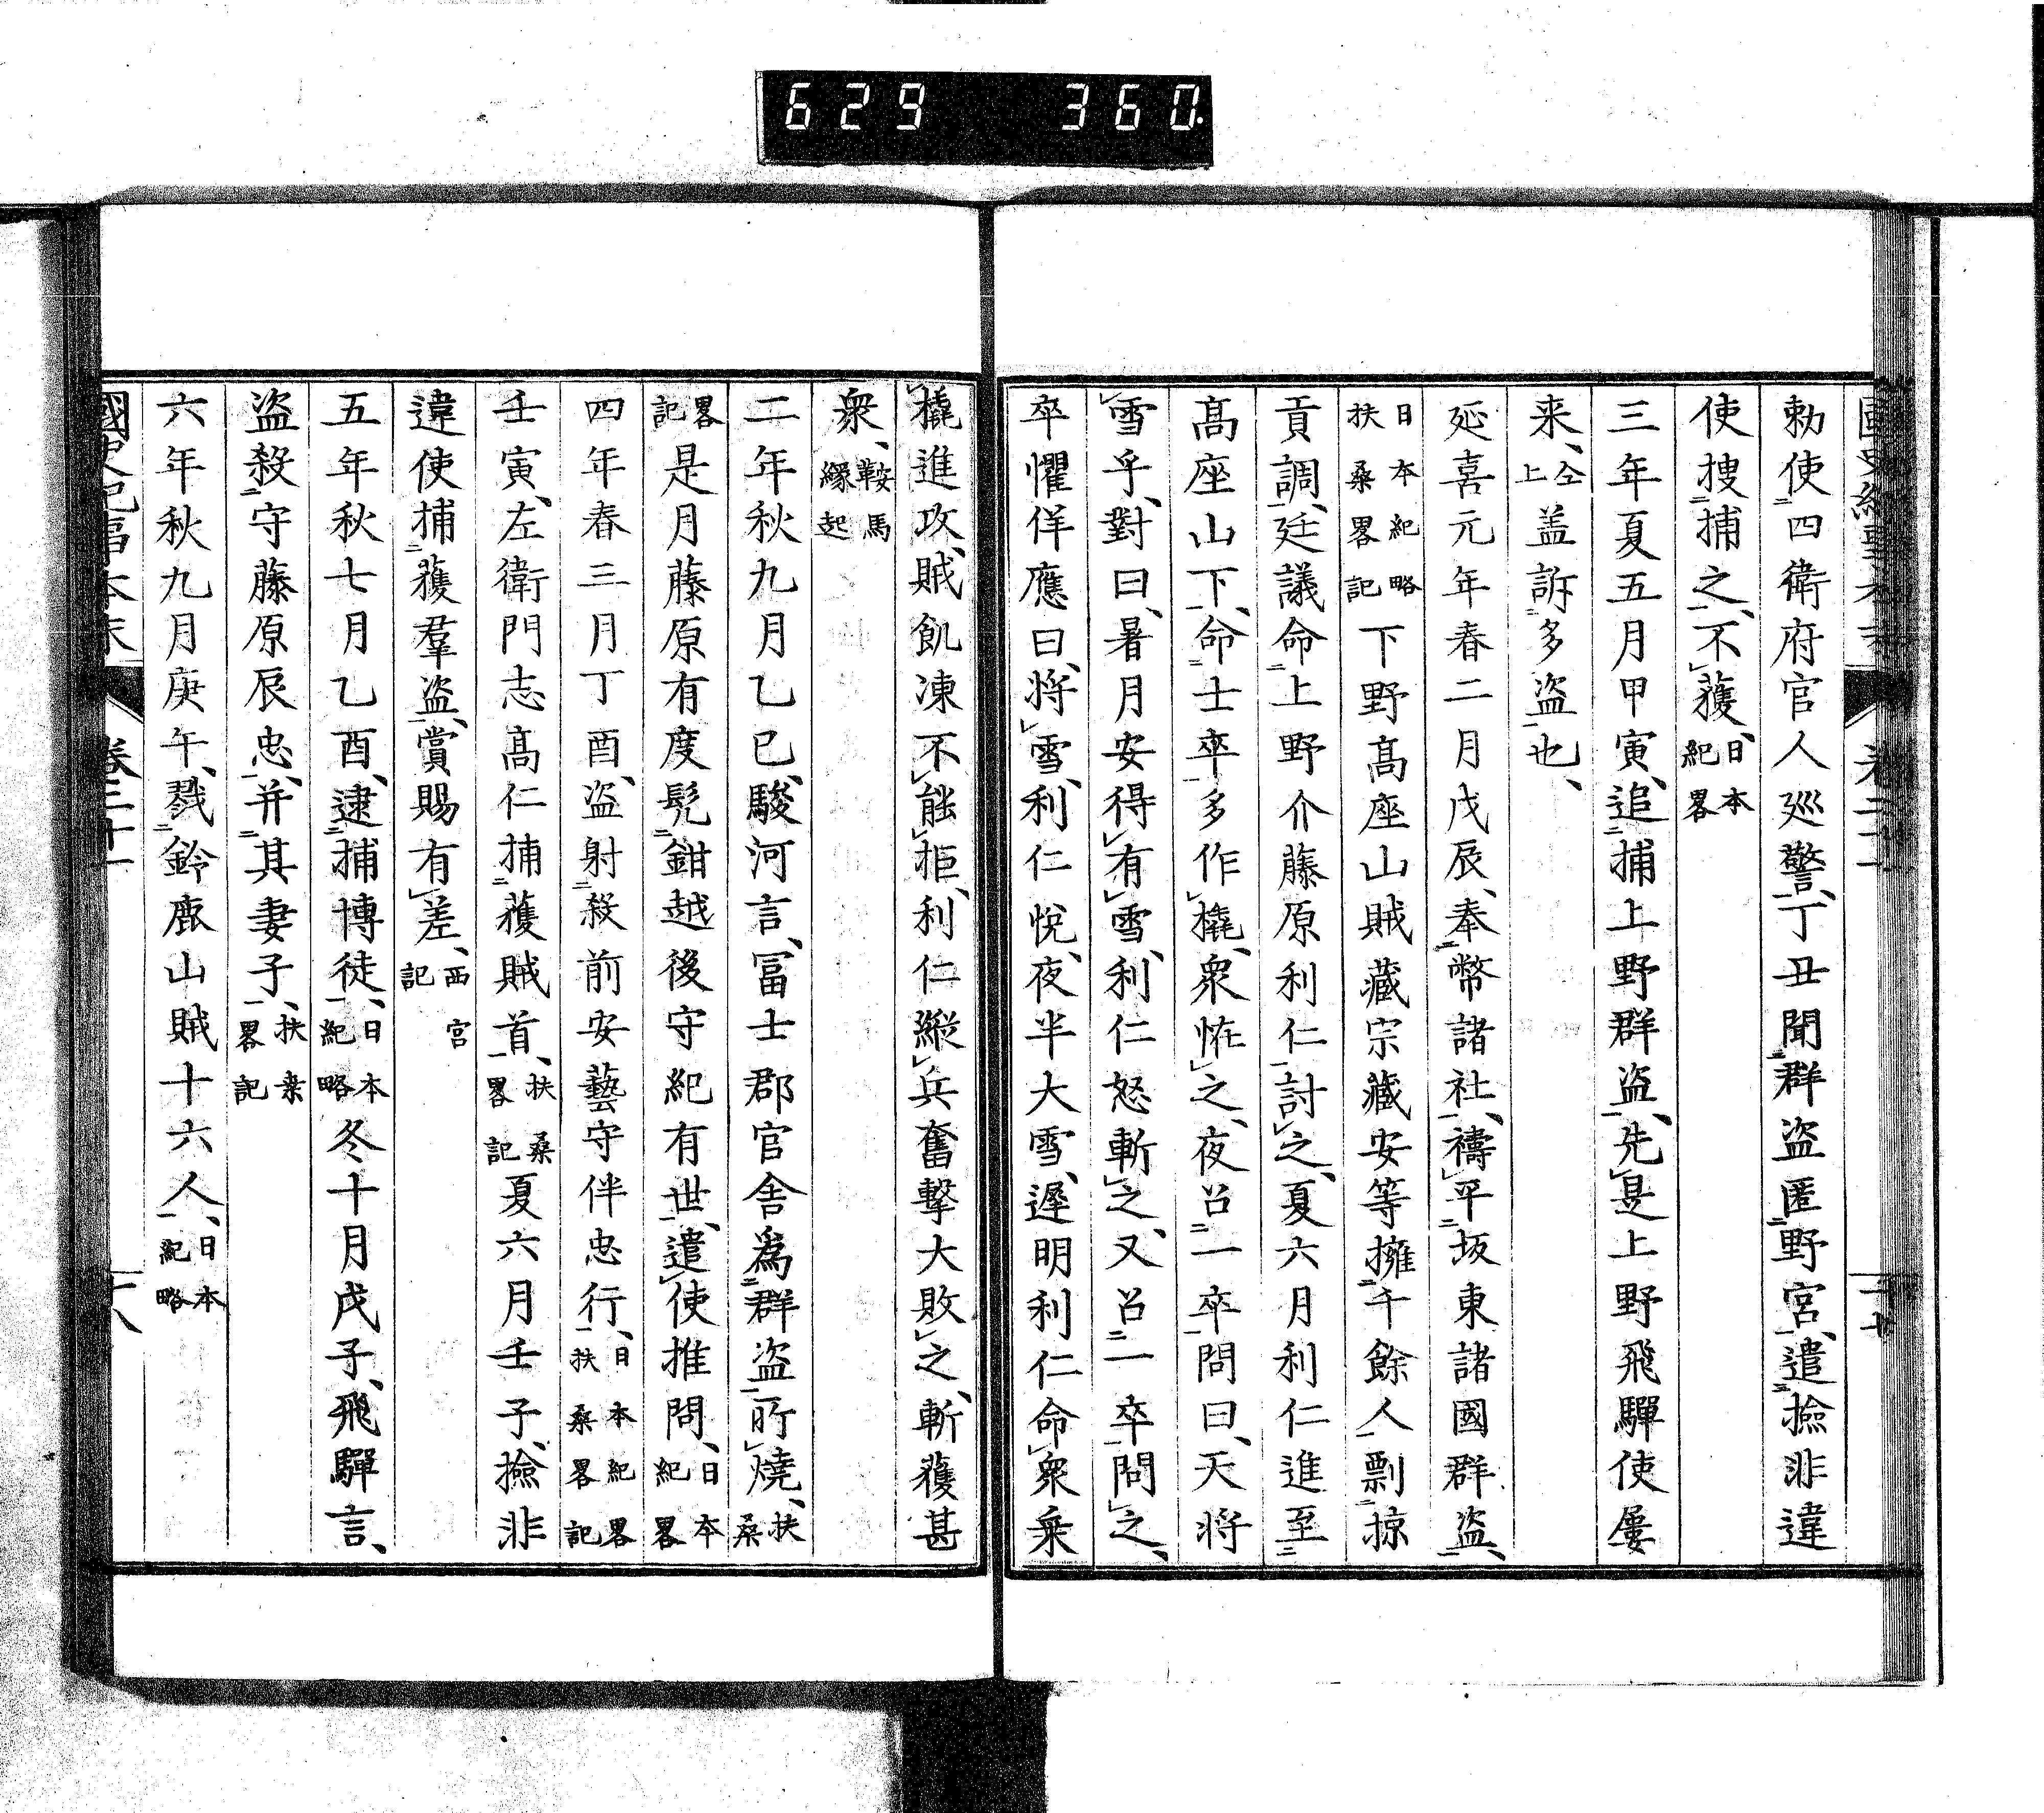 629 360.
勅使四衛府官人巡警、丁丑聞群盗匿野宮、遣撿非違
使捜捕之、不獲、日本紀畧
三年夏五月甲寅、追捕上野群盗、先是上野飛驒使屢
来、仝上盖訴多盗也、
延喜元年春二月戊辰、奉幣諸社、禱平坂東諸國群盗、
日本紀略扶桑畧記下野髙座山賊藏宗藏安等擁千餘人剽掠
貢調、廷議命上野介藤原利仁討之、夏六月利仁進至
髙座山下、命士卒多作橇、衆恠之、夜召一卒問曰、天将
雪乎、對曰、暑月安得有雪、利仁怒斬之、又召一卒問之、
卒懼佯應曰、将雪、利仁悅、夜半大雪、遲明利仁命衆乘
橇進攻、賊飢凍不能拒、利仁縱兵奮擊大敗之、斬獲甚
衆、鞍馬緣起
二年秋九月乙巳、駿河言、冨士郡官舎為群盗所燒、扶桑
畧記是月藤原有度髠鉗越後守紀有世、遣使推問、日本紀畧
四年春三月丁酉、盗射殺前安藝守伴忠行、日本紀畧扶桑畧記
壬寅、左衛門志髙仁捕獲賊首、扶桑畧記夏六月壬子、撿非
違使捕獲羣盗、賞賜有差、西宮記
五年秋七月乙酉、逮捕博徒、日本紀略冬十月戊子、飛驒言、
盗殺守藤原辰忠、并其妻子、扶桒畧記
六年秋九月庚午、戮鈴鹿山賊十六人、日本紀略
國史紀事本末 卷三十一